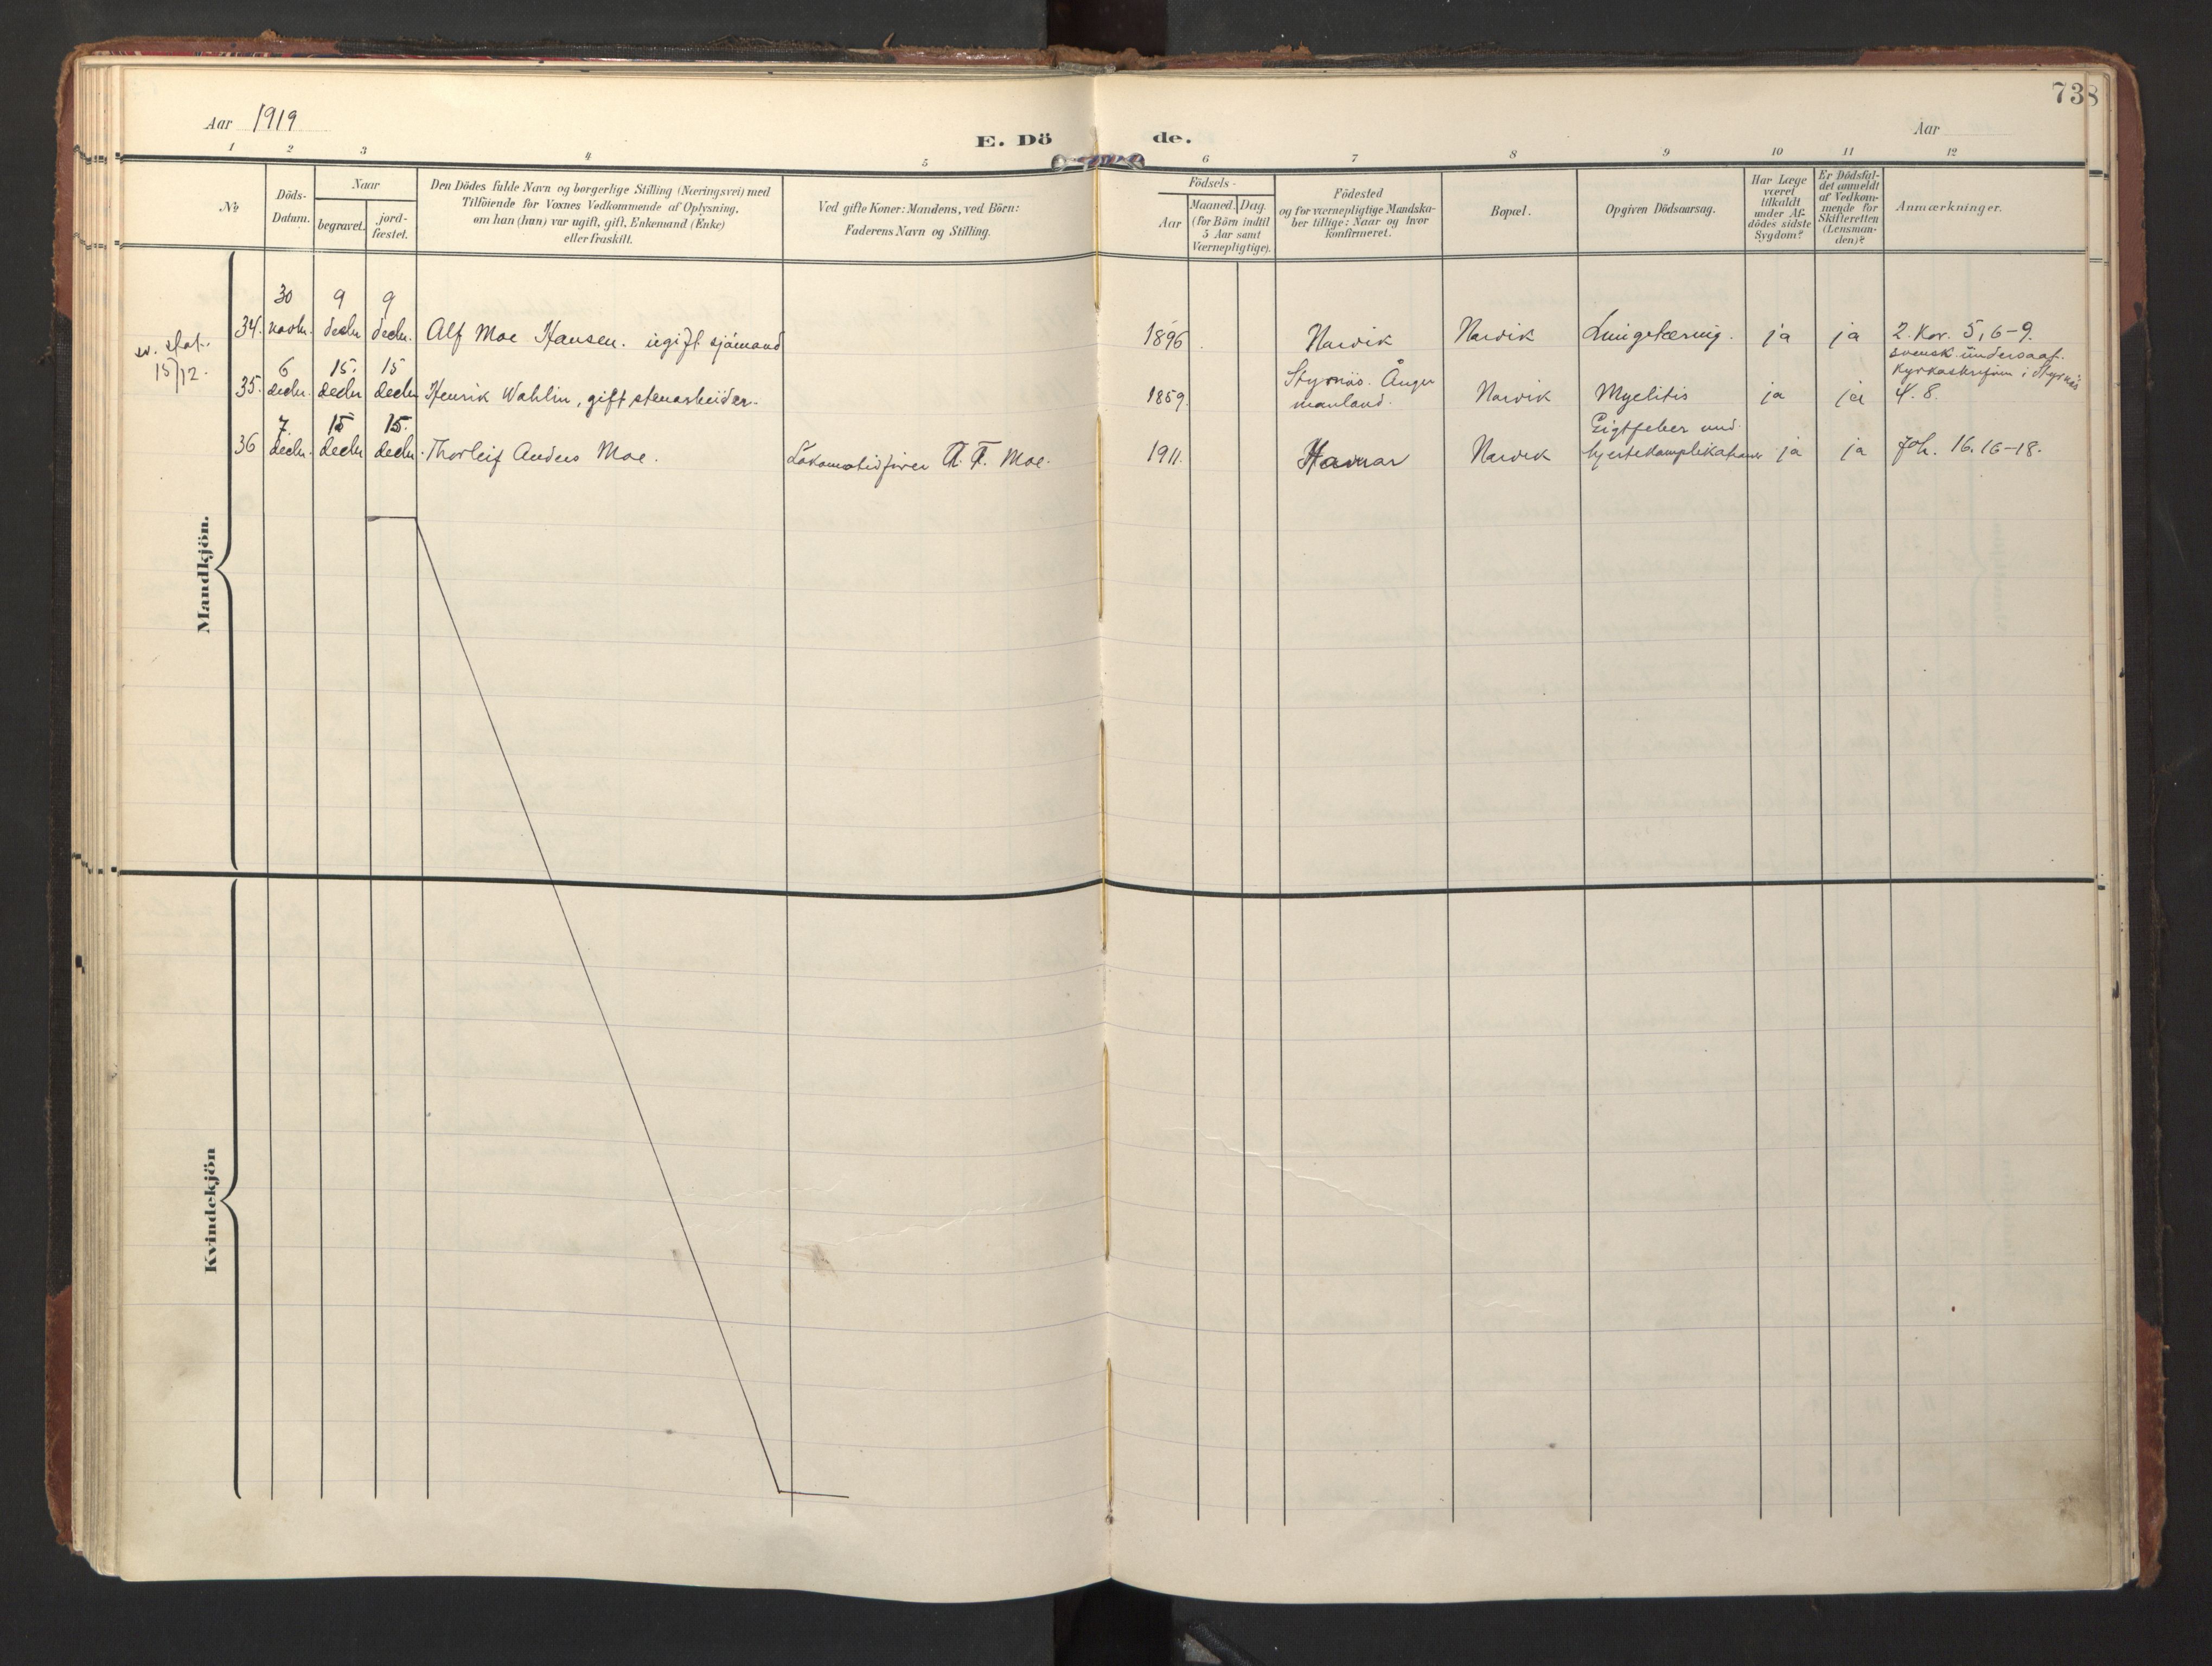 738
Aar 1919
E. Dö de.
Aar
1 2 3 4 5 6 7 8 9 10 11 12
No
Döds-
Datum.
Naar
begravet.
jord-
fæstet.
Den Dödes fulde Navn og borgerlige Stilling (Næringsvei) med
Tilföiende for Voxnes Vedkommende af Oplysning,
om han (hun) var ugift, gift, Enkemand (Enke)
eller fraskilt.
Ved gifte Koner: Mandens, ved Börn:
Faderens Navn og Stilling.
Födsels-
Aar
Maaned. Dag.
(for Börn indtil
5 Aar samt
Værnepligtige).
Födested
og for værnepligtige Mandska-
ber tillige: Naar og hvor
konfirmeret.
Bopæl.
Opgiven Dödsaarsag.
Har Læge
været
tilkaldt
under Af-
dödes sidste
Sygdom?
Er Dödsfal-
det anmeldt
af Vedkom-
mende for
Skifteretten
(Lensman-
den)?
Anmærkninger.
Mandkjön.
30 9 9
34. novbr. decbr. decbr. Alf Moe Hansen. ugift sjömand 1896 Narvik Narvik Lungetæring. ja ja 2. Kor. 5, 6-9.
sv. stat.
15/12.
svensk undersaat.
Kyrkoskrifven i Styrnäs
6 15. 15
35. decbr. decbr decbr Henrik Wahlin, gift stenarbeider. 1859 Styrnäs. Ånger
manland. Narvik Myelitis ja ja 4. 8.
7. 15 15.
36 decbr. decbr decbr. Thorleif Anders Moe. Lokomotivfører A. F. Moe. 1911. Hamar Narvik Gigtfeber med
hjertekomplikationer ja ja Joh. 16. 16-18.
Kvindekjön